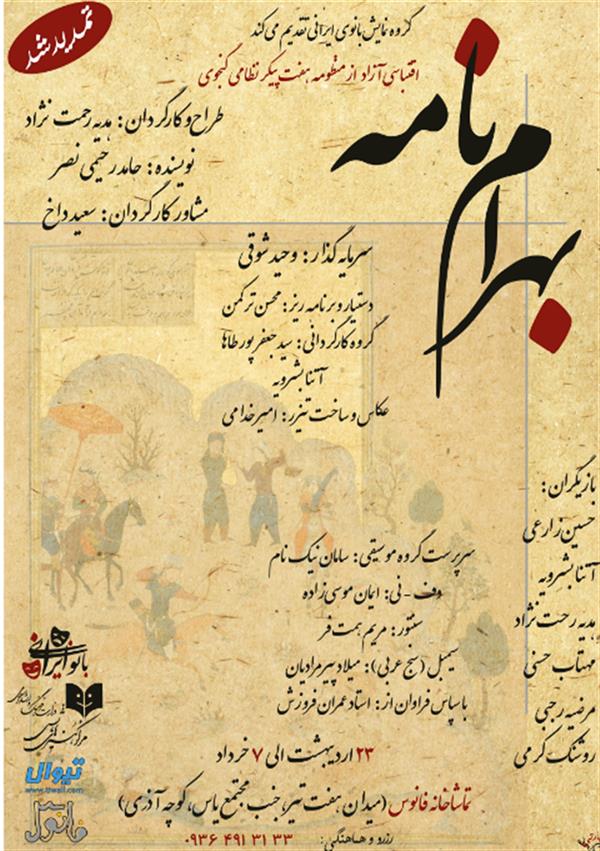 تمدید شد
گروه نمایش بانوی ایرانی تقدیم می‌کند
اقتباسی آزاد از منظومه هفت پیکر نظامی گنجوی
بهرام نامه
طراح و کارگردان: هدیه رحمت نژاد
نویسنده: حامد رحیمی نصر
مشاور کارگردان: سعید داخ
سرمایه گذار: وحید شوقی
دستیار و برنامه ریز: محسن ترکمن
گروه کارگردانی: سید جعفر پورطاها
آتنا بشرویه
عکاس و ساخت تیزر: امیر خدامی
بازیگران:
حسین زارعی
آتنا بشرویه
هدیه رحمت نژاد
مهتاب حسنی
مرضیه رجبی
روشنک کرمی
سرپرست گروه موسیقی: سامان نیک نام
دف - نی: ایمان موسی زاده
سنتور: مریم همت فر
سیمبل (سنج عربی): میلاد پیرمرادیان
با سپاس فراوان از: استاد عمران فروزش
۲۳ اردیبهشت الی ۷ خرداد
تماشاخانه فانوس (میدان هفت تیر، جنب مجتمع یاس، کوچه آذری)
رزرو و هماهنگی: ۰۹۳۶ ۴۹۱ ۳۱ ۳۳
بانو ایرانی
تیوال
www.tiwall.com
فانوس